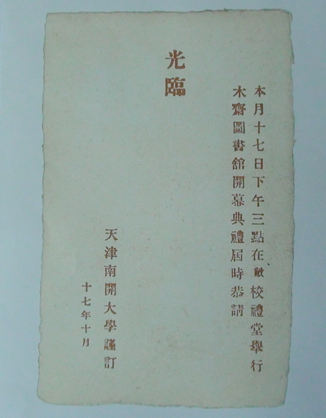 本月十七日下午三點在敝校禮堂舉行
木齋圖書舘開幕典禮屆時恭請
光臨
天津南開大學謹訂
十七年十月